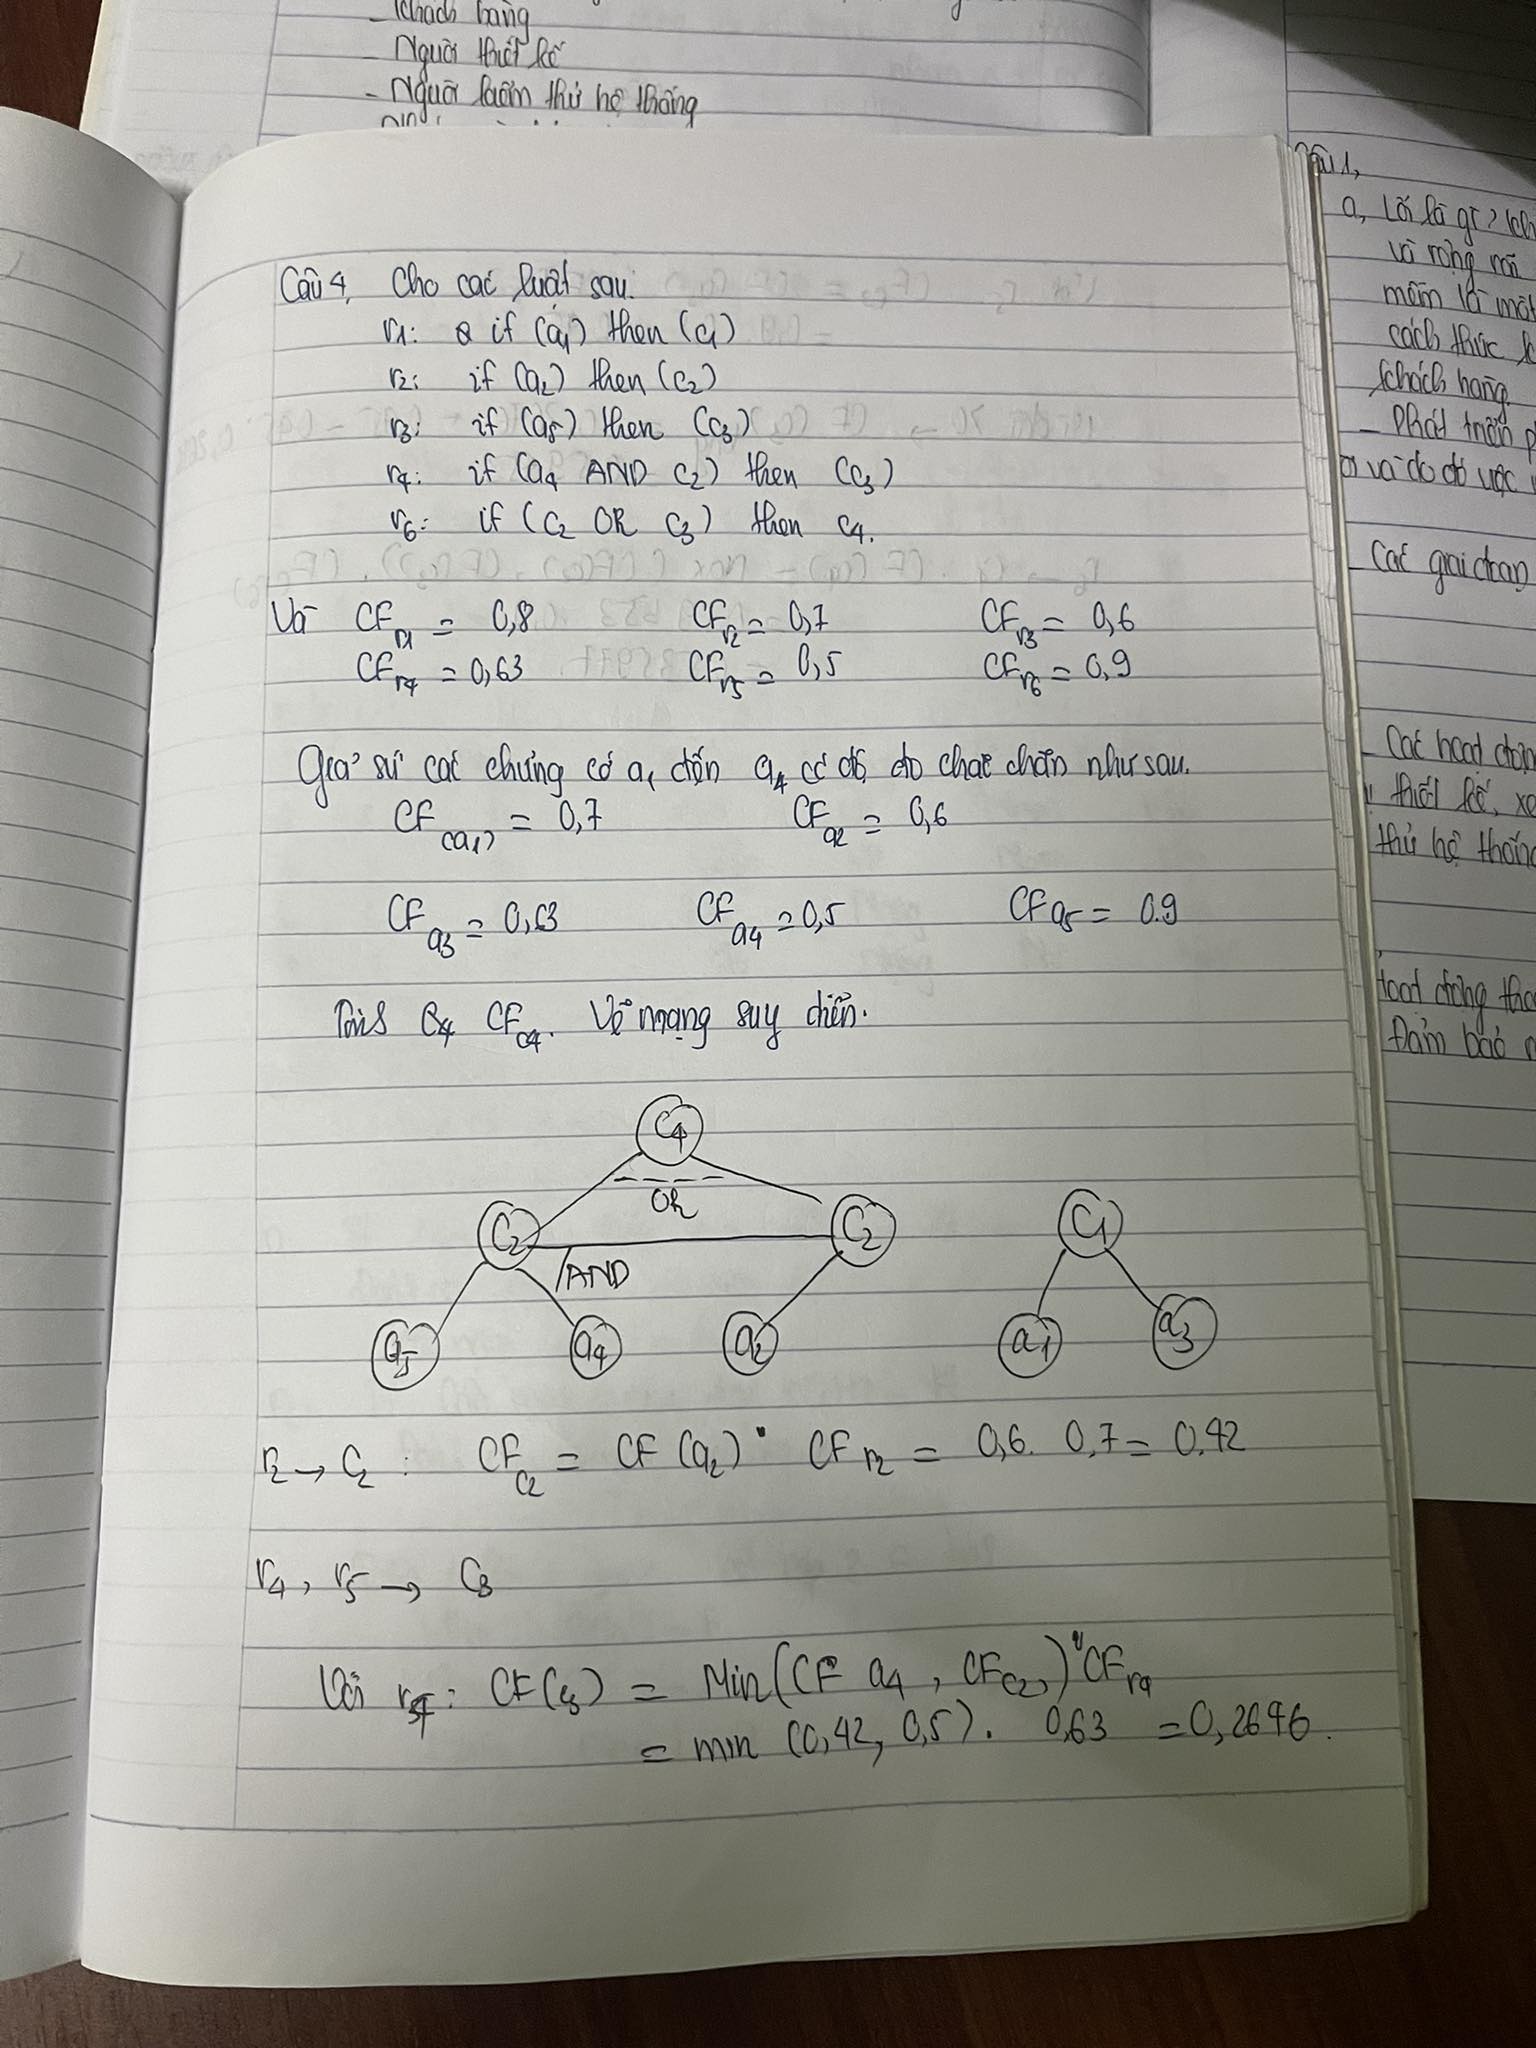 - Khách hàng
- Người thiết kế
- Người kiểm thử hệ thống
Câu 4, Cho các luật sau:
r1: if (a1) then (c1)
r2: if (a2) then (c2)
r3: if (a5) then (c3)
r4: if (a4 AND c2) then (c3)
r6: if (c2 OR c3) then c4.
Và CF r1 = 0,8 CF r2 = 0,7 CF r3 = 0,6
CF r4 = 0,63 CF r5 = 0,5 CF r6 = 0,9
Giả sử các chứng cớ a1 đến a4 có độ đo chắc chắn như sau.
CF (a1) = 0,7 CF a2 = 0,6
CF a3 = 0,63 CF a4 = 0,5 CF a5 = 0.9
CF c4. Vẽ mạng suy diễn.
C4
OR
C2 C2 C1
AND
a5 a4 a2 a1 a3
r2 → C2 : CF C2 = CF (a2) * CF r2 = 0,6. 0,7 = 0.42
r4, r5 → C3
Với CF(c3) = Min (CF a4, CF C2,) * CF r4
= min (0,42, 0,5). 0,63 = 0,2646.
Câu 1,
a, Lỗi là gì?
và rộng rãi
mềm là một
cách thức
khách hàng.
- Phát triển
và do đó việc
Các giai đoạn
- Các hoạt động
thiết kế,
thử hệ thống
Hoạt động
Đảm bảo